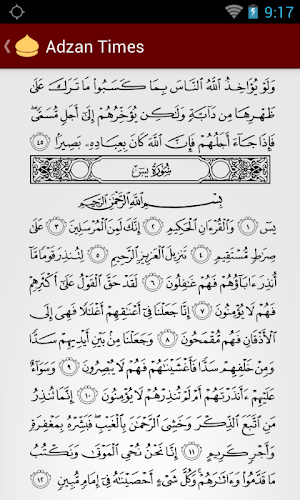 9:17
Adzan Times
وَلَوْ يُؤَاخِذُ ٱللَّهُ ٱلنَّاسَ بِمَا كَسَبُوا۟ مَا تَرَكَ عَلَىٰ
ظَهْرِهَا مِن دَآبَّةٍ وَلَـٰكِن يُؤَخِّرُهُمْ إِلَىٰٓ أَجَلٍ مُّسَمًّى ۖ
فَإِذَا جَآءَ أَجَلُهُمْ فَإِنَّ ٱللَّهَ كَانَ بِعِبَادِهِۦ بَصِيرًۢا ٤٥
سُورَةُ يسٓ
بِسْمِ ٱللَّهِ ٱلرَّحْمَـٰنِ ٱلرَّحِيمِ
يسٓ ١ وَٱلْقُرْءَانِ ٱلْحَكِيمِ ٢ إِنَّكَ لَمِنَ ٱلْمُرْسَلِينَ ٣ عَلَىٰ
صِرَٰطٍ مُّسْتَقِيمٍ ٤ تَنزِيلَ ٱلْعَزِيزِ ٱلرَّحِيمِ ٥ لِتُنذِرَ قَوْمًا مَّآ
أُنذِرَ ءَابَآؤُهُمْ فَهُمْ غَـٰفِلُونَ ٦ لَقَدْ حَقَّ ٱلْقَوْلُ عَلَىٰٓ أَكْثَرِهِمْ
فَهُمْ لَا يُؤْمِنُونَ ٧ إِنَّا جَعَلْنَا فِىٓ أَعْنَـٰقِهِمْ أَغْلَـٰلًا فَهِىَ إِلَى
ٱلْأَذْقَانِ فَهُم مُّقْمَحُونَ ٨ وَجَعَلْنَا مِنۢ بَيْنِ أَيْدِيهِمْ سَدًّا
وَمِنْ خَلْفِهِمْ سَدًّا فَأَغْشَيْنَـٰهُمْ فَهُمْ لَا يُبْصِرُونَ ٩ وَسَوَآءٌ
عَلَيْهِمْ ءَأَنذَرْتَهُمْ أَمْ لَمْ تُنذِرْهُمْ لَا يُؤْمِنُونَ ١٠ إِنَّمَا تُنذِرُ
مَنِ ٱتَّبَعَ ٱلذِّكْرَ وَخَشِىَ ٱلرَّحْمَـٰنَ بِٱلْغَيْبِ ۖ فَبَشِّرْهُ بِمَغْفِرَةٍ
وَأَجْرٍ كَرِيمٍ ١١ إِنَّا نَحْنُ نُحْىِ ٱلْمَوْتَىٰ وَنَكْتُبُ
مَا قَدَّمُوا۟ وَءَاثَـٰرَهُمْ ۚ وَكُلَّ شَىْءٍ أَحْصَيْنَـٰهُ فِىٓ إِمَامٍ مُّبِينٍ ١٢